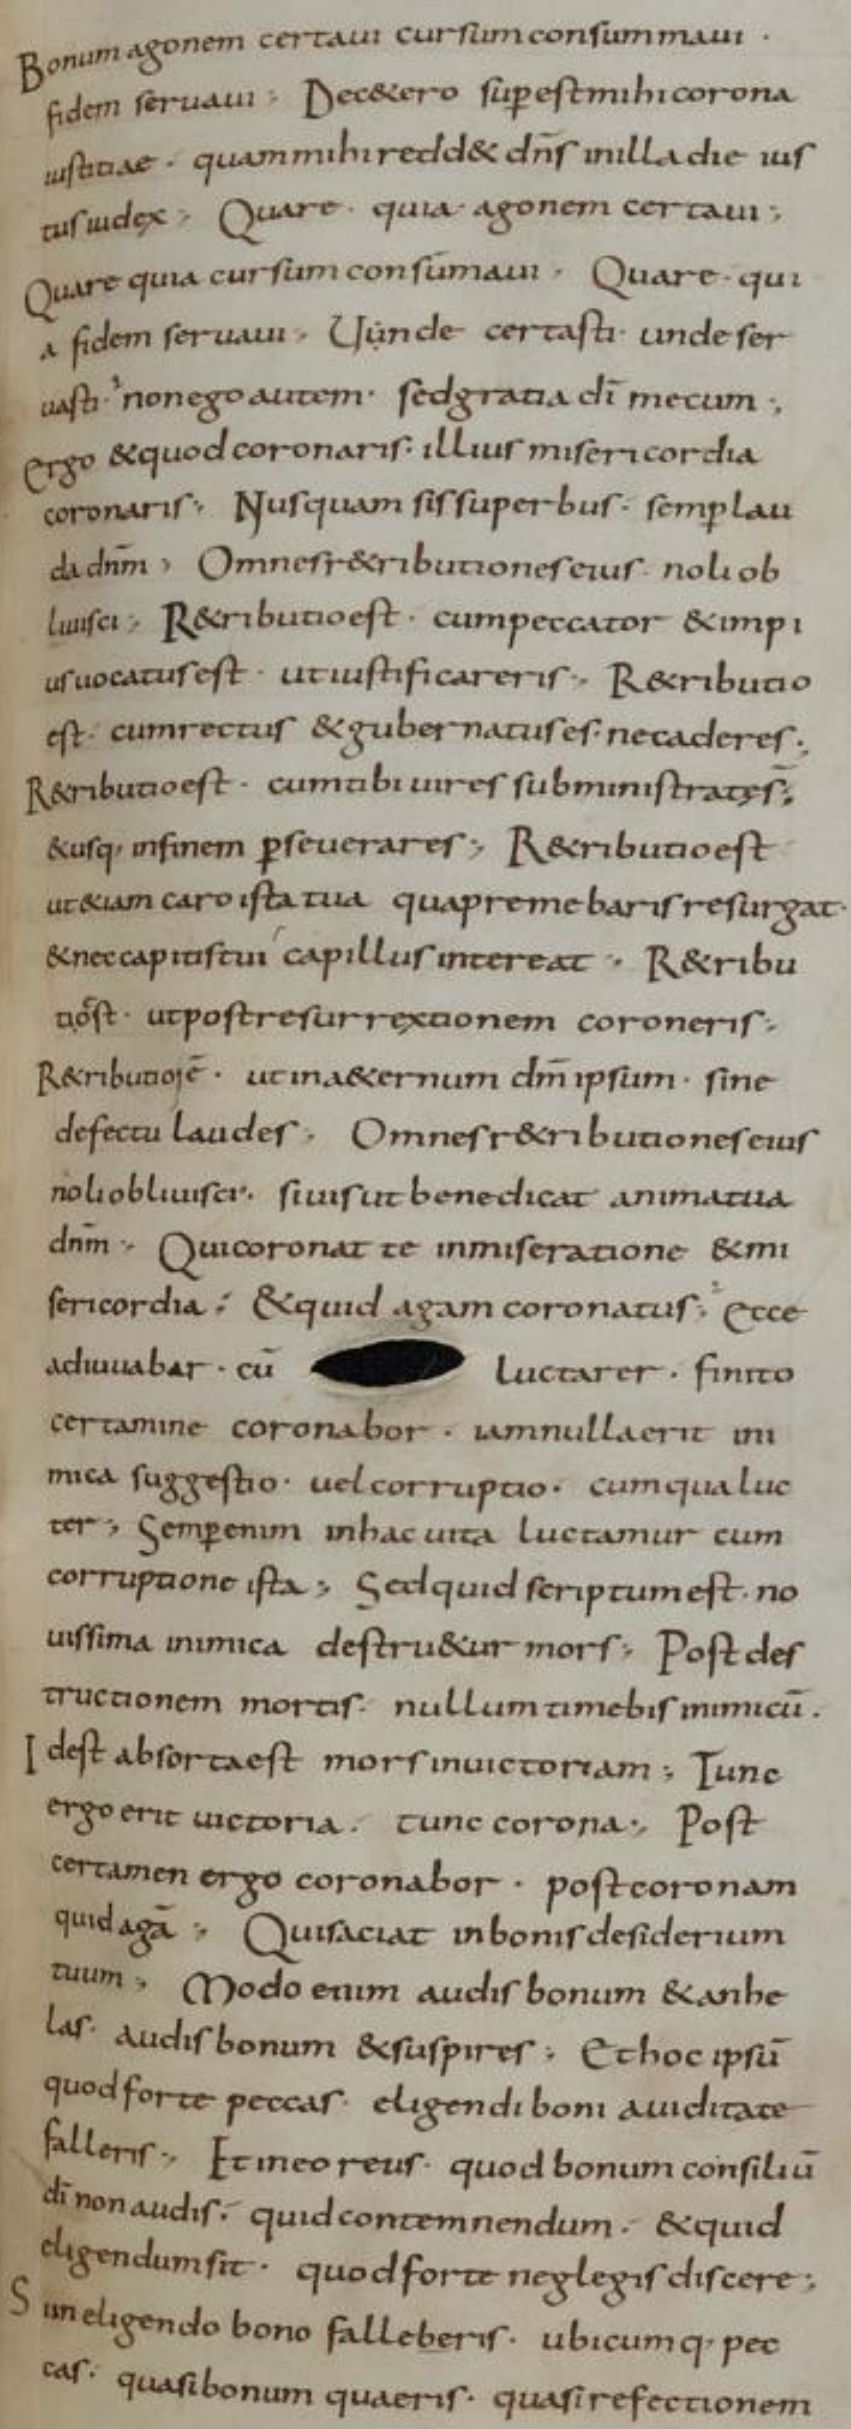 Bonum agonem certaui cursum consummaui ·
fidem seruaui ; Dec&ero sup̱est mihi corona
iustitiae · quam mihi redd& dn̄s in illa die ius
tus iudex ; Quare · quia · agonem certaui ;
Quare quia cursum consūmaui · Quare · qui
a fidem seruaui ; Uunde certasti · unde ser
uasti · non ego autem · sed gratia dī mecum ;
Ergo & quod coronaris · illius misericordia
coronaris ; Nusquam sis superbus · semp̱ lau
da dnm̄ ; Omnes r&ributiones eius · noli ob
liuisci ; R&ributio est · cum peccator & impi
us uocatus est · ut iustificareris ; R&ributio
est · cum rectus & gubernatus es · ne caderes ;
R&ributio est · cum tibi uires subministratę s̄ ;
& usq· in finem p̱seuerares ; R&ributio est
ut &iam caro ista tua qua premebaris resurgat ·
& nec capitis tui capillus intereat ; R&ribu
tio st · ut post resurrextionem coroneris ;
R&ributio ē · ut in a&ernum dm̄ ipsum · sine
defectu laudes ; Omnes r&ributiones eius
noli obliuisci · si uis ut benedicat anima tua
dnm̄ ; Qui coronat te in miseratione & mi
sericordia ; & quid agam coronatus ; Ecce
adiuuabar · cū luctarer · finito
certamine coronabor · iam nulla erit ini
mica suggestio · uel corruptio · cum qua luc
ter ; Semp̱ enim in hac uita luctamur cum
corruptione ista ; Sed quid scriptum est · no
uissima inimica destru&ur mors ; Post des
tructionem mortis · nullum timebis inimicū ·
Id est absorta est mors in uictoriam ; Tunc
ergo erit uictoria · tunc corona ; Post
certamen ergo coronabor · post coronam
quid agā ; Qui saciat in bonis desiderium
tuum ; Modo enim audis bonum & anhe
las · audis bonum & suspires ; Et hoc ipsū
quod forte peccas · eligendi boni auiditate
falleris ; Et in eo reus · quod bonum consiliū
dī non audis · quid contemnendum · & quid
eligendum sit · quod forte neglegis discere ;
S in eligendo bono falleberis · ubicumq· pec
cas · quasi bonum quaeris · quasi refectionem